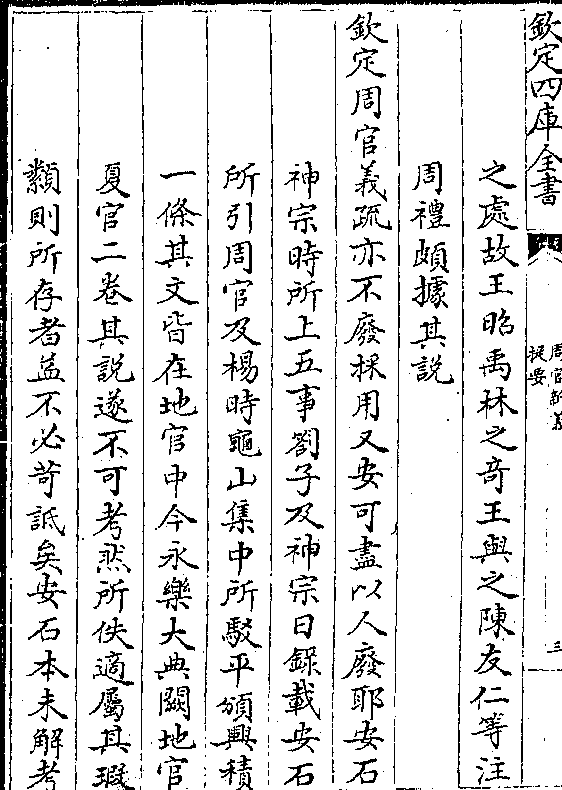 欽定四庫全書
周官新義
提要
三
之處故王昭禹林之奇王與之陳友仁等注
周禮頗據其說
欽定周官義疏亦不廢採用又安可盡以人廢耶安石
神宗時所上五事劄子及神宗日錄載安石
所引周官及楊時龜山集中所駁平頒興積
一條其文皆在地官中今永樂大典闕地官
夏官二卷其說遂不可考然所佚適屬其瑕
纇則所存者益不必苛詆矣安石本未解考